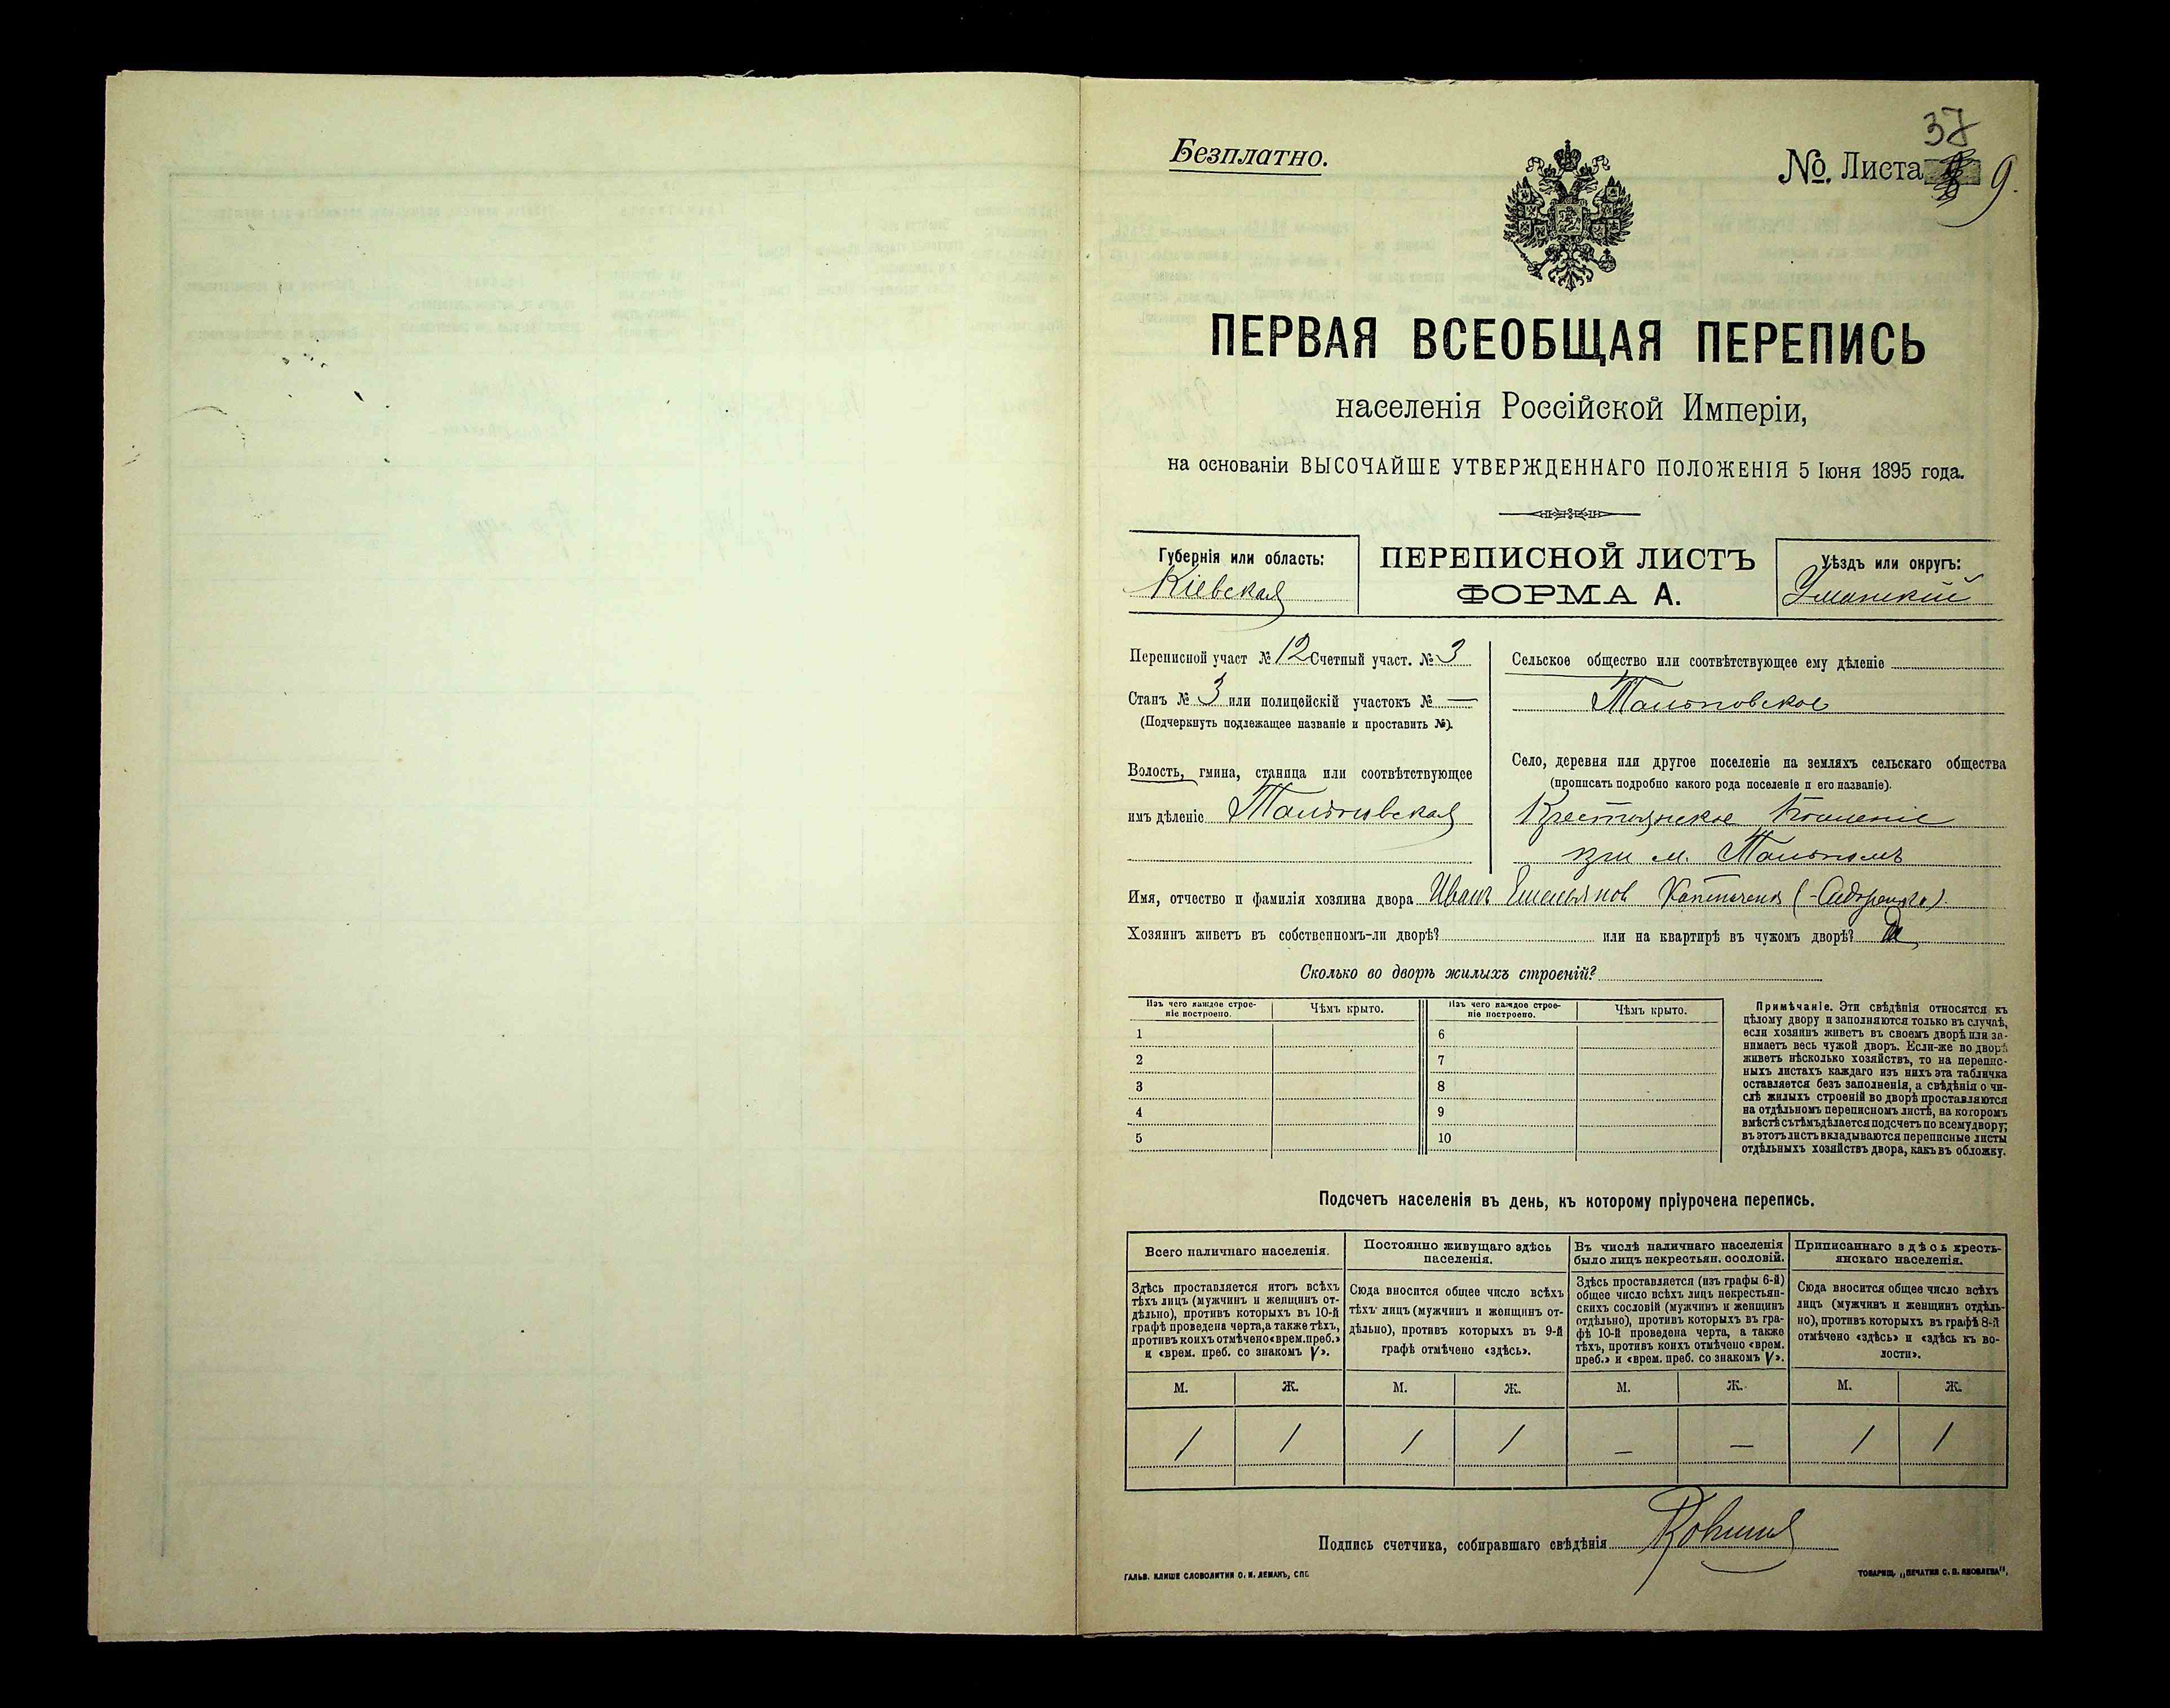 37
Безплатно.
№ Листа 9.
ПЕРВАЯ ВСЕОБЩАЯ ПЕРЕПИСЬ
населенія Россійской Имперіи,
на основаніи ВЫСОЧАЙШЕ УТВЕРЖДЕННАГО ПОЛОЖЕНІЯ 5 Іюня 1895 года.
Губернія или область:
Кіевская
ПЕРЕПИСНОЙ ЛИСТЪ
ФОРМА А.
Уѣздъ или округъ:
Уманскій
Переписной участ № 12 Счетный участ. № 3
Станъ № 3 или полицейскій участокъ № —
(Подчеркнуть подлежащее названіе и проставить №).
Волость, гмина, станица или соотвѣтствующее
имъ дѣленіе Тальновская
Сельское общество или соотвѣтствующее ему дѣленіе
Тальновское
Село, деревня или другое поселеніе на земляхъ сельскаго общества
(прописать подробно какого рода поселеніе и его названіе).
Крестьянское
при м. Тальномъ
Имя, отчество и фамилія хозяина двора Иванъ Емельянов
Хозяинъ живетъ въ собственномъ-ли дворѣ? или на квартирѣ въ чужомъ дворѣ? Да
Сколько во дворѣ жилыхъ строеній?
Изъ чего каждое строе-
ніе построено.
Чѣмъ крыто.
Изъ чего каждое строе-
ніе построено.
Чѣмъ крыто.
1 6
2 7
3 8
4 9
5 10
Примѣчаніе. Эти свѣдѣнія относятся къ
цѣлому двору и заполняются только въ случаѣ,
если хозяинъ живетъ въ своемъ дворѣ или за-
нимаетъ весь чужой дворъ. Если-же во дворѣ
живетъ нѣсколько хозяйствъ, то на перепис-
ныхъ листахъ каждаго изъ нихъ эта табличка
оставляется безъ заполненія, а свѣдѣнія о чи-
слѣ жилыхъ строеній во дворѣ проставляются
на отдѣльномъ переписномъ листѣ, на которомъ
вмѣстѣ съ тѣмъ дѣлается подсчетъ по всему двору;
въ этотъ листъ вкладываются переписные листы
отдѣльныхъ хозяйствъ двора, какъ въ обложку.
Подсчетъ населенія въ день, къ которому пріурочена перепись.
Всего наличнаго населенія.
Здѣсь проставляется итогъ всѣхъ
тѣхъ лицъ (мужчинъ и женщинъ от-
дѣльно), противъ которыхъ въ 10-й
графѣ проведена черта, а также тѣхъ,
противъ коихъ отмѣчено «врем. преб.»
и «врем. преб. со знакомъ V».
Постоянно живущаго здѣсь
населенія.
Сюда вносится общее число всѣхъ
тѣхъ лицъ (мужчинъ и женщинъ от-
дѣльно), противъ которыхъ въ 9-й
графѣ отмѣчено «здѣсь».
Въ числѣ наличнаго населенія
было лицъ некрестьян. сословій.
Здѣсь проставляется (изъ графы 6-й)
общее число всѣхъ лицъ некрестьян-
скихъ сословій (мужчинъ и женщинъ
отдѣльно), противъ которыхъ въ гра-
фѣ 10-й проведена черта, а также
тѣхъ, противъ коихъ отмѣчено «врем.
преб.» и «врем. преб. со знакомъ V».
Приписаннаго здѣсь кресть-
янскаго населенія.
Сюда вносится общее число всѣхъ
лицъ (мужчинъ и женщинъ отдѣль-
но), противъ которыхъ въ графѣ 8-й
отмѣчено «здѣсь» и «здѣсь къ во-
лости».
М. Ж. М. Ж. М. Ж. М. Ж.
1 1 1 1 — — 1 1
Подпись счетчика, собиравшаго свѣдѣнія
ГАЛЬВ. КЛИШЕ СЛОВОЛИТНИ О. И. ЛЕМАНЪ, СПБ.
ТОВАРИЩ. „ПЕЧАТНЯ С. П. ЯКОВЛЕВА".